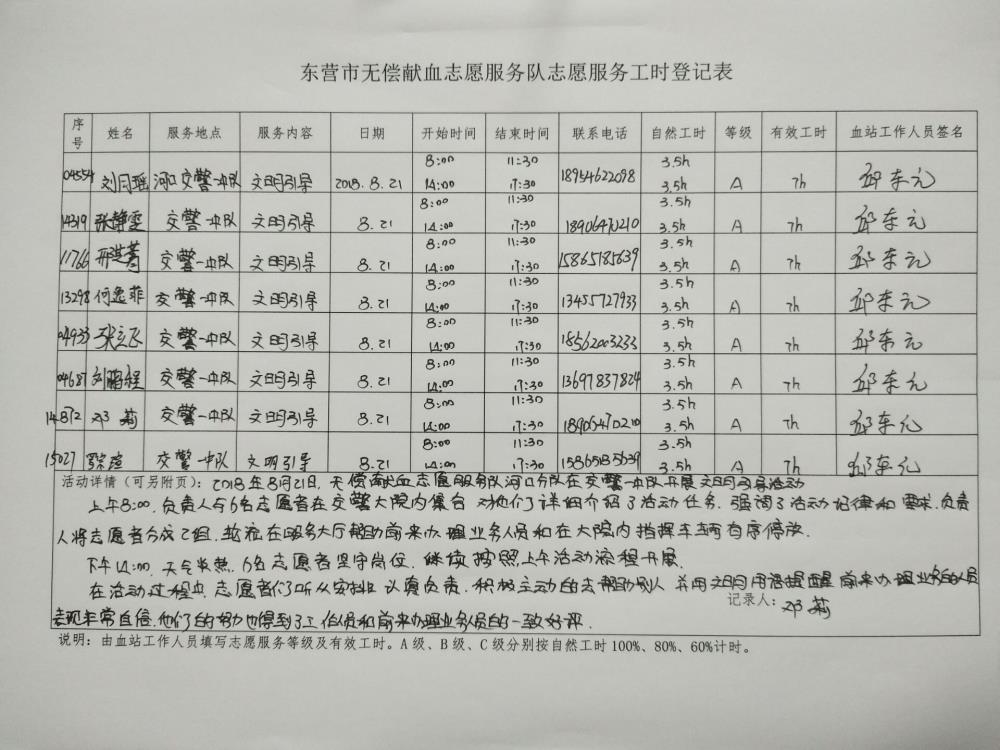 东营市无偿献血志愿服务队志愿服务工时登记表
序号 姓名 服务地点 服务内容 日期 开始时间 结束时间 联系电话 自然工时 等级 有效工时 血站工作人员签名
8:00 11:30 3.5h
04554 刘月瑶 河口交警一中队 文明引导 2018.8.21 14:00 17:30 18954622098 3.5h A 7h 邱东元
8:00 11:30 3.5h
14319 张静雯 交警一中队 文明引导 8.21 14:00 17:30 18906470210 3.5h A 7h 邱东元
8:00 11:30 3.5h
11766 交警一中队 文明引导 8.21 14:00 17:30 15865185639 3.5h A 7h 邱东元
8:00 11:30 3.5h
13298 何逸菲 交警一中队 文明引导 8.21 14:00 17:30 13455727933 3.5h A 7h 邱东元
8:00 11:30 3.5h
04933 张立飞 交警一中队 文明引导 8.21 14:00 17:30 18562003233 3.5h A 7h 邱东元
8:00 11:30 3.5h
04687 刘鹏程 交警一中队 文明引导 8.21 14:00 17:30 13697837824 3.5h A 7h 邱东元
8:00 11:30 3.5h
14872 邓莉 交警一中队 文明引导 8.21 14:00 17:30 18906470210 3.5h A 7h 邱东元
8:00 11:30 3.5h
15027 交警一中队 文明引导 8.21 14:00 17:30 15865185639 3.5h A 7h 邱东元
活动详情（可另附页）：2018年8月21日，无偿献血志愿服务队河口分队在交警一中队开展文明引导活动
上午8:00，负责人与6名志愿者在交警大院内集合 对他们了详细介绍了活动任务，强调了活动记律和要求，负责
人将志愿者分成2组，轮流在服务大厅帮助前来办理业务人员和在大院内指挥车辆有序停放。
下午14:00，天气炎热，6名志愿者坚守岗位，继续按照上午活动流程开展
在活动过程中，志愿者们听从安排，认真负责，积极主动的去帮助别人 并用文明用语提醒前来办理业务的人员
记录人：邓莉
表现非常自信，他们的努力也得到了工作人员和前来办理业务人员的一致好评。
说明：由血站工作人员填写志愿服务等级及有效工时。A级、B级、C级分别按自然工时100%、80%、60%计时。